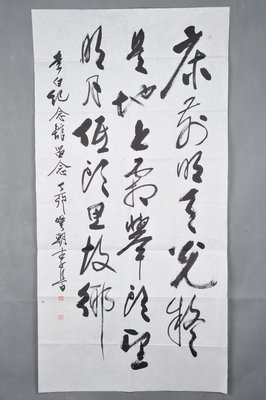 床前明月光疑
是地上霜举头望
明月低头思故乡
李白纪念馆留念